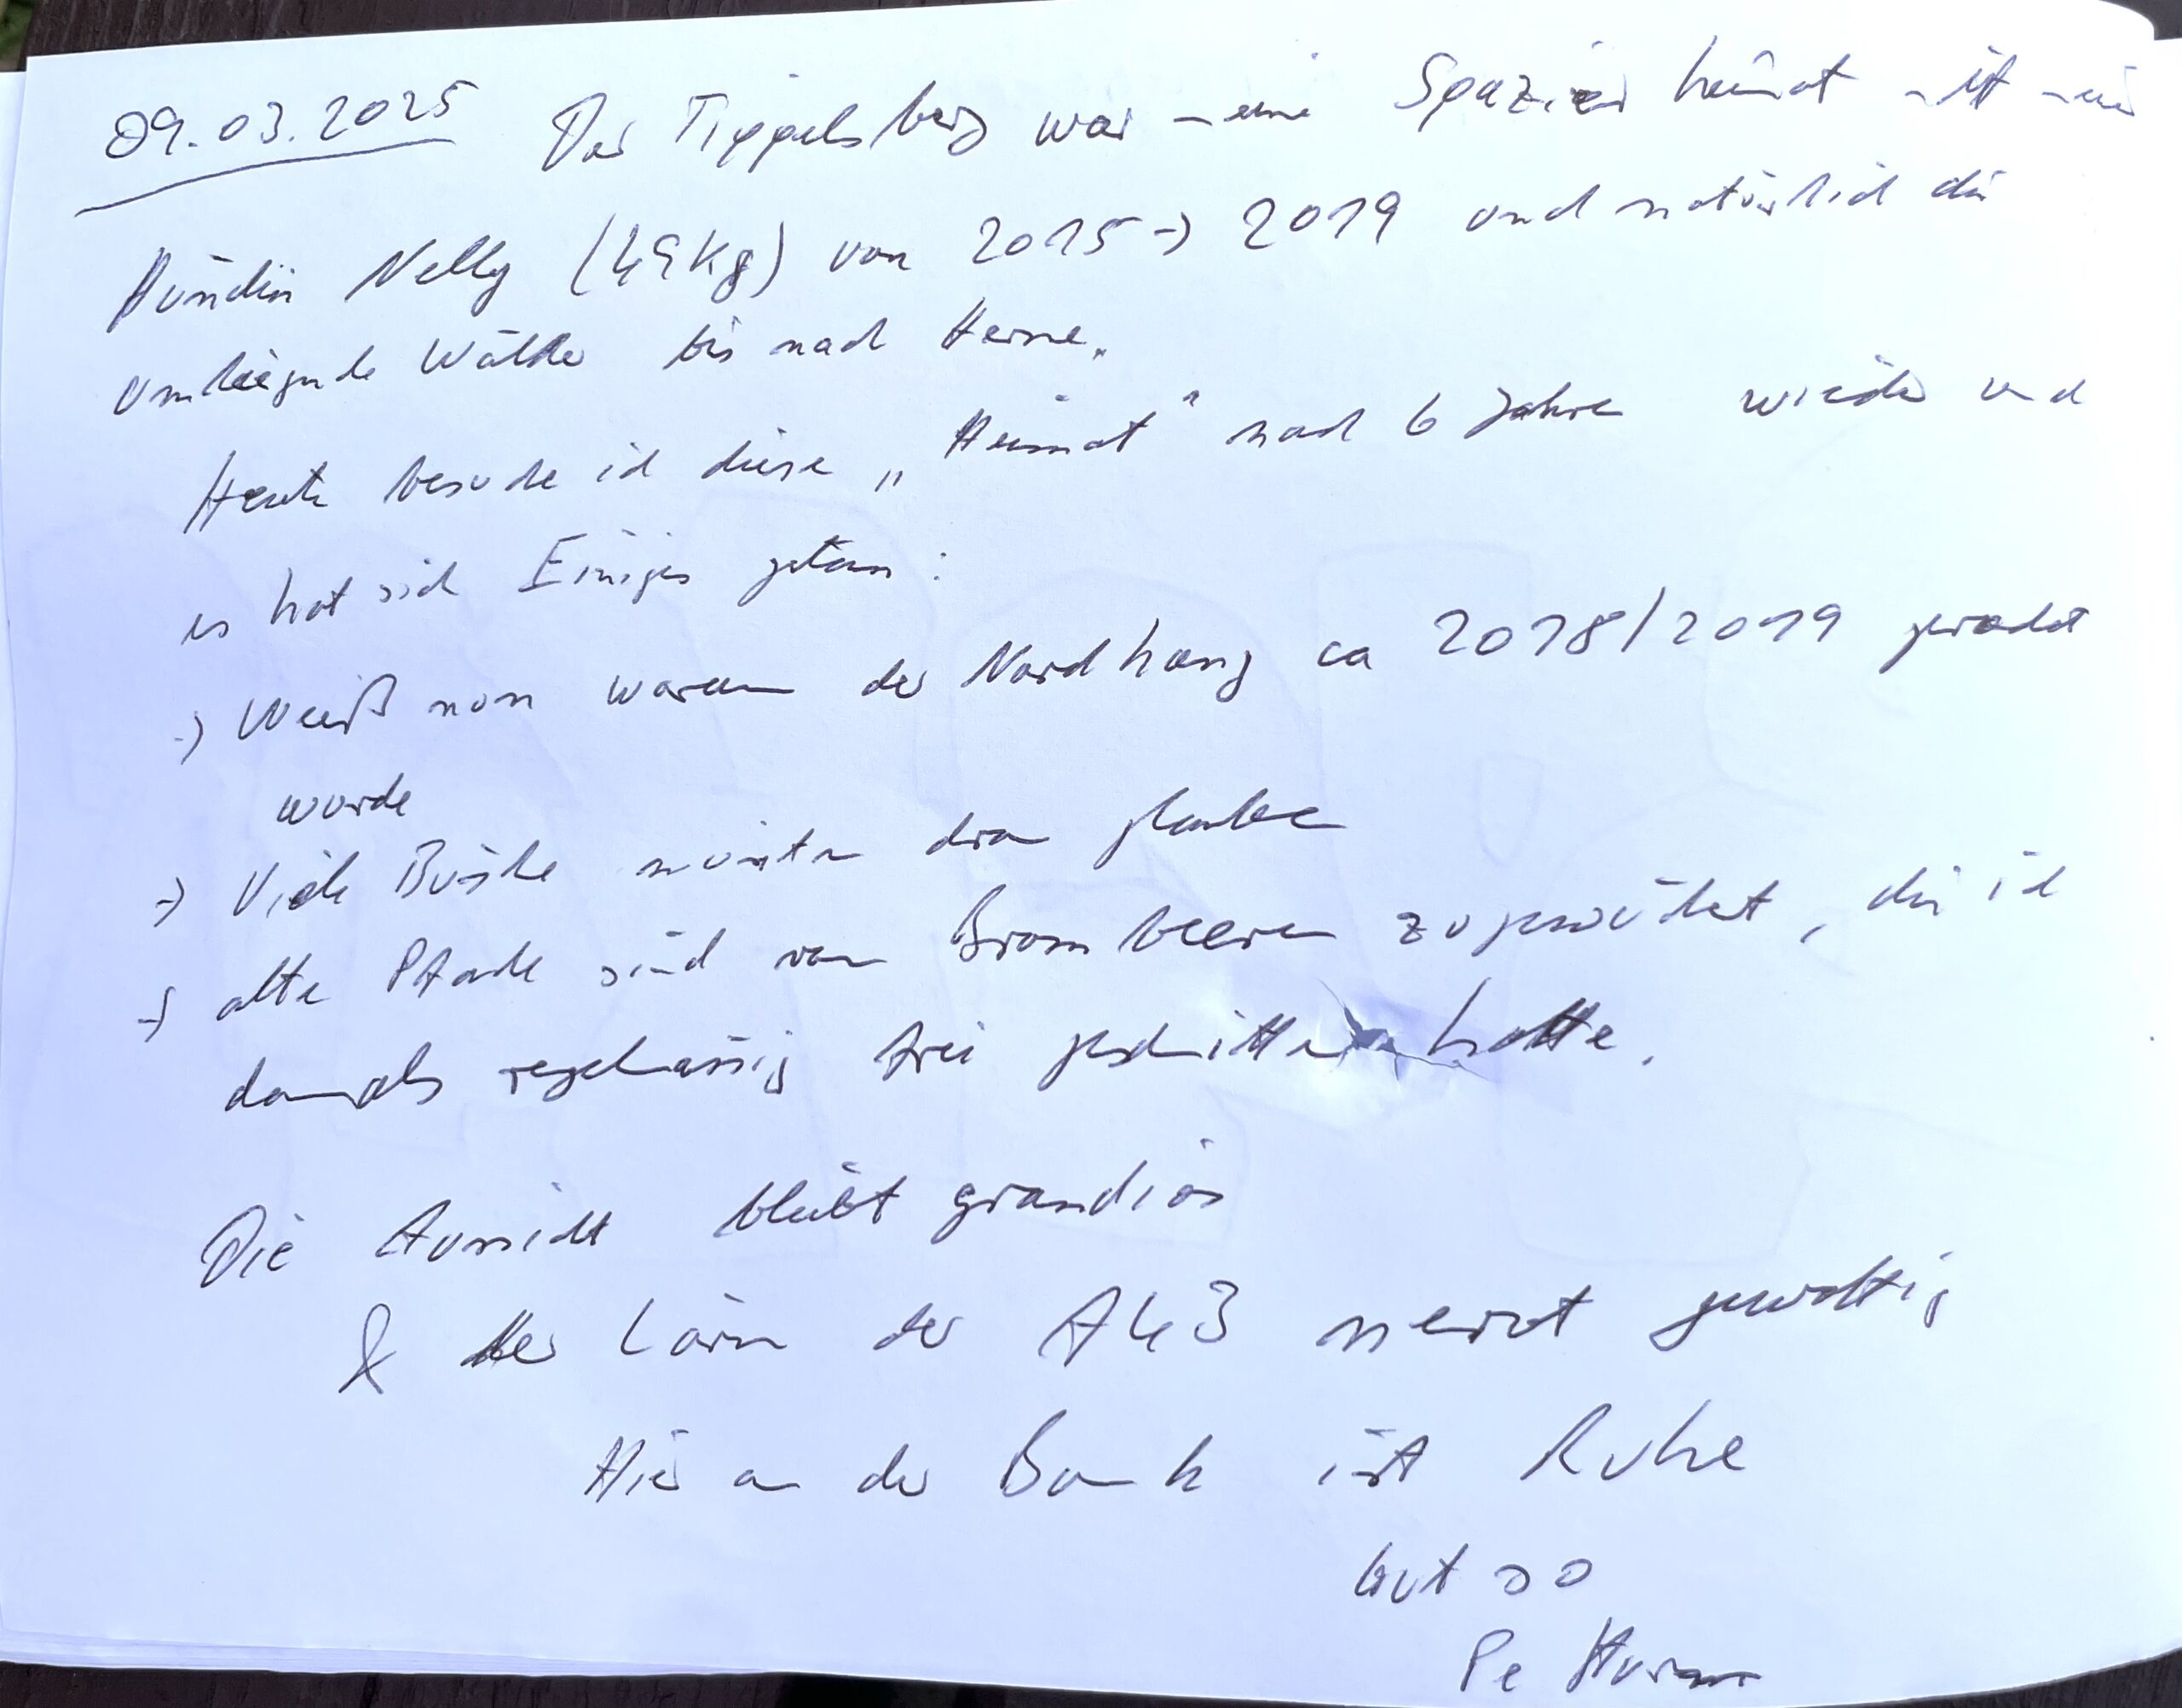 09.03.2025 Der Tippelsberg war meine Spazierheimat mit meiner
Hündin Nelly (49kg) von 2015 -> 2019 und natürlich die
umliegende Wälder bis nach Herne.
Heute besuche ich diese „Heimat" nach 6 Jahren wieder und
es hat sich Einiges getan:
-> Weiß nun warum der Nordhang ca 2018/2019 gerodet
wurde
-> Viele Büsche mussten dran glauben
-> alte Pfade sind von Brombeeren zugewuchert, die ich
damals regelmässig frei geschnitten hatte.
Die Aussicht bleibt grandios
& der Lärm der A43 nervt gewaltig
Hier an der Bank ist Ruhe
Gut so
Pe